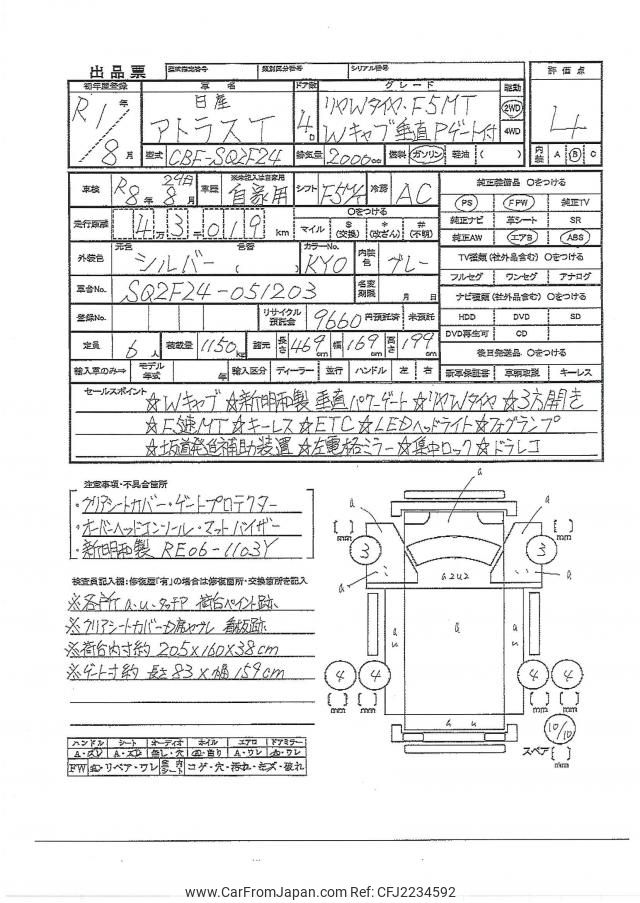 出品票 型式指定番号 類別区分番号 シリアル番号
初年度登録 車名 ドア数 グレード 駆動 評価点
R1年 日産 リヤWタイヤ.F5MT 2WD
8月 アトラスT 4D Wキャブ 垂直Pゲート付 4WD 4
型式 CBF-SQ2F24 排気量 2000cc 燃料 ガソリン・軽油・( ) 内装 A B C
車検 R8年8月29日 車歴 ※未記入は自家用 自家用 シフト F5 冷房 AC 純正装備品 〇をつける
PS PW 純正TV
走行距離 4万3千019km 〇をつける マイル $(交換) *(改ざん) #(不明) 純正ナビ 革シート SR
純正AW エアB ABS
外装色 元色 シルバー 色替 ( ) カラーNo. KY0 内装色 グレー TV種類(社外品含む) 〇をつける
フルセグ ワンセグ アナログ
車台No. SQ2F24-051203 名変期限 月 日 ナビ種類(社外品含む) 〇をつける
登録No. リサイクル預託金 9660円預託済 未預託 HDD DVD SD
DVD再生可 CD
定員 6人 積載量 1150kg 諸元 長さ 469cm 幅 169cm 高さ 199cm 後日発送品 〇をつける
輸入車のみ⇒ モデル年式 年 輸入区分 ディーラー 並行 ハンドル 左 右 新車保証書 車輌取説 キーレス
セールスポイント ☆Wキャブ ☆新明和製 垂直パワーゲート ☆リヤWタイヤ ☆3方開き
☆F5速MT ☆キーレス ☆ETC ☆LEDヘッドライト ☆フォグランプ
☆坂道発進補助装置 ☆左電格ミラー ☆集中ロック ☆ドラレコ
注意事項・不具合箇所
・クリアシートカバー・ゲートプロテクター
・オーバーヘッドコンソール・マットバイザー
・新明和製 RE06-1103Y
検査員記入欄:修復歴「有」の場合は修復箇所・交換箇所を記入
※各所 a.u.タッチP 荷台ペイント跡
※クリアシートカバー 看板跡
※荷台内寸約 205×160×38cm
※ゲート寸約 長さ83×幅159cm
a
a a
[ ]mm [ ]mm
3 3
a a
a2u2
a
u u
4 4 4 4
[ ]mm [ ]mm [ ]mm [ ]mm
a u
10/10
スペア [ ]mm
ハンドル シート オーディオ ホイル エアロ ドアミラー
A・スレ A・スレ 無し・穴 A・曲り A・ワレ A・ワレ
FW A・リペア・ワレ 室内シート コゲ・穴・汚れ・キズ・破れ
www.CarFromJapan.com Ref: CFJ2234592